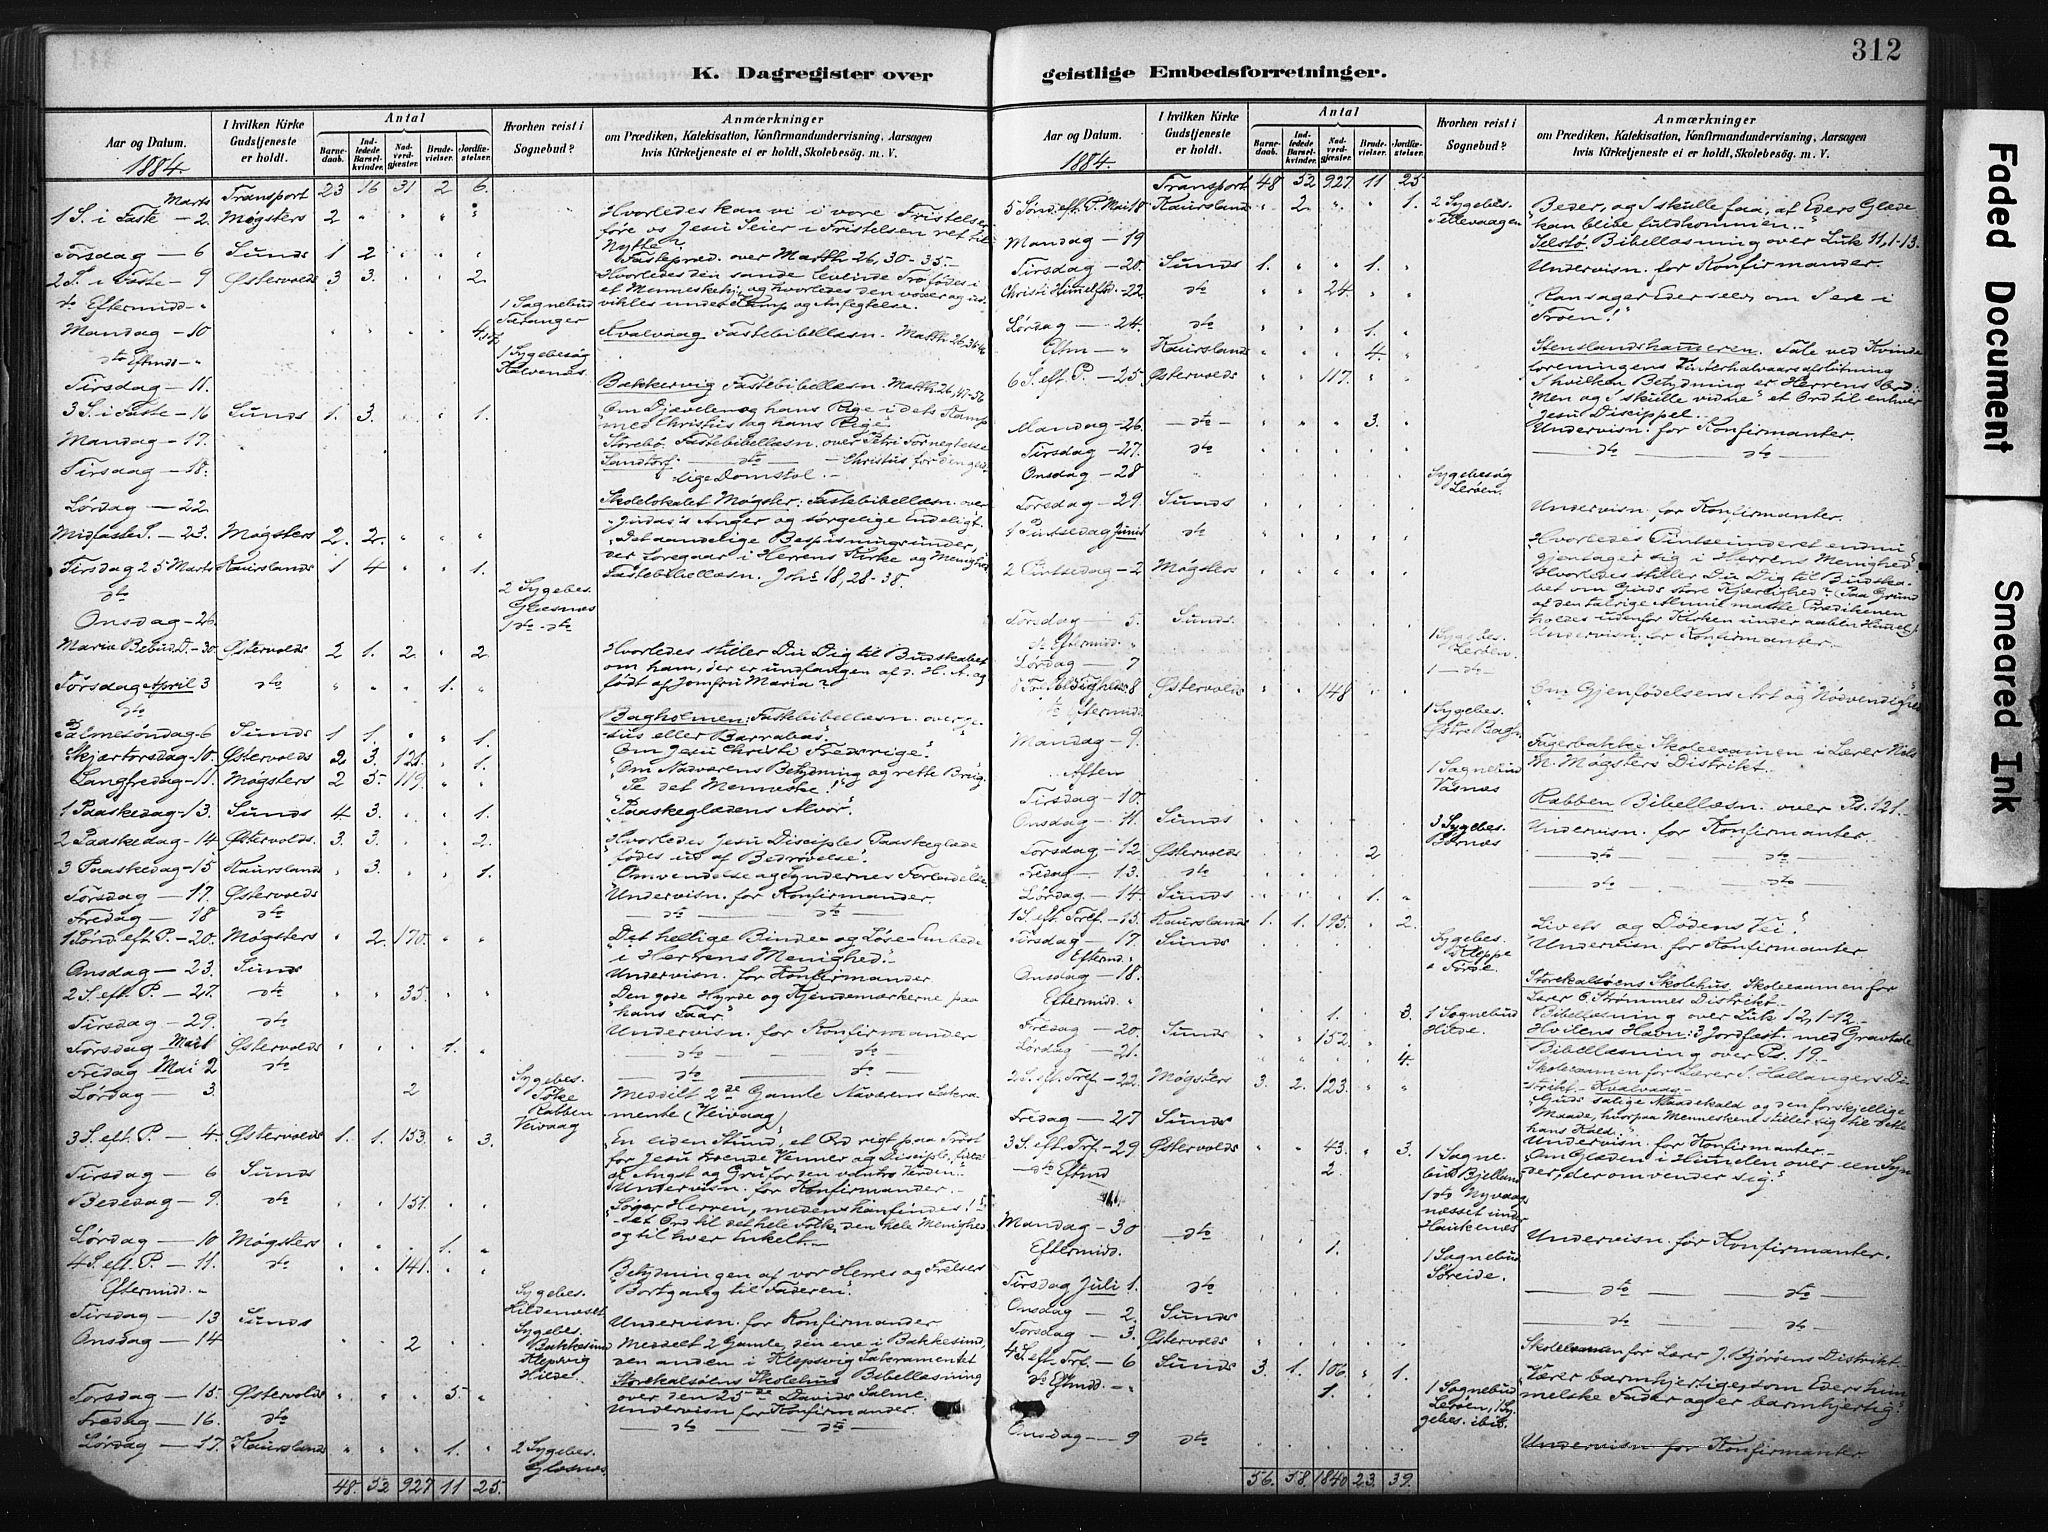 312
K. Dagregister over
geistlige Embedsforretninger.
Faded Document
Smeared Ink
Aar og Datum.
1884.
I hvilken Kirke Gudstjeneste er holdt.
Antal
Barne-daab.
Ind-ledede Barsel-kvinder.
Nad-verd-gjester.
Brude-vielser.
Jordfæ-stelser.
Hvorhen reist i Sognebud?
Anmærkninger
om Prædiken, Katekisation, Konfirmandundervisning, Aarsagen
hvis Kirketjeneste ei er holdt, Skolebesøg. m. V.
Marts Transport 23 16 31 2 6.
1 S. i Faste - 2. Møgsters 2 Hvorledes kan vi i vore Fristelser
føre os Jesu Seier i Fristelsen ret til
Nytte?
Torsdag - 6 Sunds 1 2 Fastepræd. over Matth. 26, 30-35.
2 S. i Faste - 9 Østervolds 3 3. 2. Hvorledes den sande levende Tro fødes i
et Menneskehj. og hvorledes den voxer og ud-
dto Eftermidd. - " 1 Sognebud vikles under Kamp og Anfegtelse.
Mandag - 10 Kvalvaag Fastebibellæsn. Matth. 26,36-46
dto Eftmd. - " 1 Sygebesøg Kalvenæs.
Tirsdag - 11. Bakkervig Fastebibellæsn. Matth 26,47-56
3 S. i Faste - 16 Sunds 1. 3. 1. "Om Djævelen og hans Rige i dets Kamp
med Christus og hans Rige"
Mandag - 17. Storebø Fastebibellæsn. over Petri Fornegtelse
Tirsdag - 18. Landtorf: - dto - Christus for den geist-
lige Domstol. -
Lørdag - 22. Skolelokalet Møgster: Fastebibellæsn. over
"Judas's Anger og sørgelige Endeligt.
Midfaste S. - 23. Møgsters 2. 2. "Det aandelige Bespisningsunder,
der foregaar i Herrens Kirke og Menighed
Tirsdag 25 Marts Kaurslands 1 4 1. Fastebibellæsn. Johs 18, 28-38.
dto 2 Sygebes. Glæsnæs
Onsdag - 26. 1 dto - dto
Maria Bebud. D. - 30. Østervolds 2 1. 2. 2. Hvorledes stiller Du Dig til Budskabet
om ham, der er undfangen af d. H. A. og
født af Jomfru Maria?
Torsdag April 3 dto 1.
dto Bagholmen: Fastebibellæsn. over Je-
sus eller Barrabas".
Palmesøndag - 6 Sunds 1 1. 1. "Om Jesu Christi Fredsrige".
Skjærtorsdag - 10. Østervolds 2 3. 121. 1. "Om Nadverens Betydning og rette Brug.
Langfredag - 11. Møgsters 2 5. 119. "Se det Menneske!"
1 Paaskedag - 13. Sunds 4 3. 1. "Paaskeglædens Alvor".
2 Paaskedag - 14 Østervolds. 3. 3. 2. Hvorledes Jesu Disciples Paaskeglæde
fødes ud af Bedrøvelse.
3 Paaskedag - 15 Kaursland 3. 1. "Omvendelse og Syndernes Forladelse.
Torsdag - 17. Østervolds Undervisn. for Konfirmander.
Fredag - 18 dto - dto - dto -
1 Sønd. eft P. - 20. Møgsters 2. 170. "Det hellige Binde- og Løse-Embede
i Herrens Menighed.
Onsdag - 23. Sunds Undervisn. for Konfirmander
2 S. eft. P. - 27. dto 35. "Den gode Hyrde og Kjendemærkerne paa
hans Faar".
Tirsdag - 29. dto Undervisn. for Konfirmander
Torsdag Mai 1 Østervolds 1. - dto - dto -
Fredag Mai 2 dto - dto - dto -
Lørdag - 3. 2 Sygebes. Føke Rabben Veivaag Meddelt 2de Gamle Nadverens Sakra-
mente (Veivaag)
3 S. eft. P. - 4. Østervolds 1. 1. 153. 3. "En liden Stund", et Ord rigt paa Trøst
for Jesu troende Venner og Disciple, fuldt
af Angst og Gru for den vantro Verden."
Tirsdag - 6 Sunds Undervisn. for Konfirmander.
Bededag - 9. dto 151. "Søger Herren, medens han findes!"
et Ord til det hele Folk, den hele Menighed
og til hver Enkelt.
Lørdag - 10 Møgsters 1.
4 S. eft. P. - 11. dto 141. "Betydningen af vor Herres og Frelsers
Bortgang til Faderen."
Eftermidd. " Sygebes. Hildenæset
Tirsdag - 13 Sunds Undervisn. for Konfirmander
Onsdag - 14 2 Sygebes. Bakkesund Klepsvig Hilde. Meddelt 2 Gamle, den ene i Bakkesund,
den anden i Klepsvig Sakramentet
Storekalsøens Skolehus Bibellæsning
over den 25de Davids Salme.
Torsdag - 15. Østervolds 5. Undervisn. for Konfirmander.
Fredag - 16. dto - dto - dto -
Lørdag - 17. Kaurslands 1. 2 Sygebes. Glæsnæs.
48. 52 927 11 25.
Aar og Datum.
1884.
I hvilken Kirke Gudstjeneste er holdt.
Antal
Barne-daab.
Ind-ledede Barsel-kvinder.
Nad-verd-gjester.
Brude-vielser.
Jordfæ-stelser.
Hvorhen reist i Sognebud?
Anmærkninger
om Prædiken, Katekisation, Konfirmandundervisning, Aarsagen
hvis Kirketjeneste ei er holdt, Skolebesøg. m. V.
Transport 48 52 927 11 25
5 Sønd. eft. P. Mai 18 Kaursland 2. 1. 2 Sygebes. Tellevaagen "Beder, og I skulle faa, at Eders Glæde
kan blive fuldkommen."
Mandag - 19 Selstø. Bibellæsning over Luk 11, 1-13.
Tirsdag - 20. Sunds 1. 1. Undervisn. for Konfirmander.
Christi Himelfd. - 22. dto 24. "Ransager Eder selv om I ere i
Troen!"
Lørdag - 24. dto 1.
Eftm - " Kaurslands 4. Stenslandshameren. Tale ved Kvinde-
foreningens Vinterhalvaarsafslutning
6 S. eft. P. - 25 Østervolds 117. I hvilken Betydning er Herrens Ord:
Men og I skulle vidne" et Ord til enhver
Jesu Discippel.
Mandag - 26. dto 3. Undervisn. for Konfirmanter.
Tirsdag - 27. dto - dto - dto -
Onsdag - 28 Sygebesøg Lerøen.
Torsdag - 29. Sunds Undervisn. for Konfirmanter.
1 Pintsedag Juni 1 dto Hvorledes Pintseunderet endnu
gjentager sig i Herrens Menighed
2 Pintsedag - 2 Møgsters Hvorledes stiller Du Dig til Budska-
bet om Guds store Kjærlighed? (Paa Grund
af den talrige Almue maatte Prædikenen
holdes udenfor Kirken under aaben Himel)
Torsdag - 5. Sunds. Undervisn. for Konfirmanter.
dto Eftermidd. " 1 Sygebes. Lerøen.
Lørdag - 7 1 - dto -
Trefoldighed - 8 Østervolds 148 "Om Gjenfødelsens Art og Nødvendighed"
dto Eftermidd. 1 Sygebes. Østre Bagh.
Mandag - 9. Fagerbakke Skoleexamen i Lærer Nils
M. Møgsters Distrikt.
Aften 1 Sognebud Vasnæs
Tirsdag - 10. Rabben Bibellæsn. over Ps. 121.
Onsdag - 11. Sunds 3 Sygebes. Børnæs Undervisn. for Konfirmanter.
Torsdag - 12 Østervolds 2 - dto -
Fredag - 13. dto - dto -
Lørdag - 14. Sunds 1.
1 S. eft. Tref. - 15. Kaurslands 1. 1. 195. 2. Livets og Dødens Vei."
Tirsdag - 17. Sunds Sygebes. Kleppe Undervisn. for Konfirmanter
Eftermd. "
Onsdag - 18. Storekalsøens Skolehus. Skoleexamen for
Lærer O Strømmes Distrikt.
Eftermidd. " 1. 3. 1 Sognebud Hilde. Bibellæsning over Luk 12, 1-12.
Fredag - 20. Sunds 152. Hvilens Havn: 3 Jordfæst. med Gravtale
Lørdag - 21. 4. Bibellæsning over Ps. 19.
Skoleexamen for Lærer S. Hallangers Di-
strikt - Kvalvaag -
2 S. eft. Tref - 22. Møgsters 3. 2. 123. "Guds salige Naadekald og den forskjellige
Maade, hvorpaa Menneskene stiller sig til dette
hans Kald."
Fredag - 27 Sunds Undervisn. for Konfirmanter.
3 S. eft. Tref. - 29 Østervolds 43. 3. "Om Glæden i Himelen over een Syn-
der, der omvender sig."
dto Eftmd 2. 1 Sogne-bud Bjelland 1 dto Nyvaag-næsset under Haukenæs
Mandag - 30 dto Undervisn. for Konfirmanter.
Eftermidd. 1. 1 Sognebud Søreide.
Tirsdag Juli 1. dto - dto - dto -
Onsdag - 2. Sunds - dto - dto -
Torsdag - 3. Østervolds Skoleexamen for Lærer J. Bjørøens Distrikt.
4 S. eft. Tref. - 6 Sunds 3. 1. 106. 1. "Værer barmhjertige, som Eders him-
melske Fader og er barmhjertig"
dto Eftmd. - " 1. 1 Sognebud Lerøen, 1 Sy-gebes. ibid.
Onsdag - 9 dto Undervisn for Konfirmanter.
56. 58. 1840 23. 39.